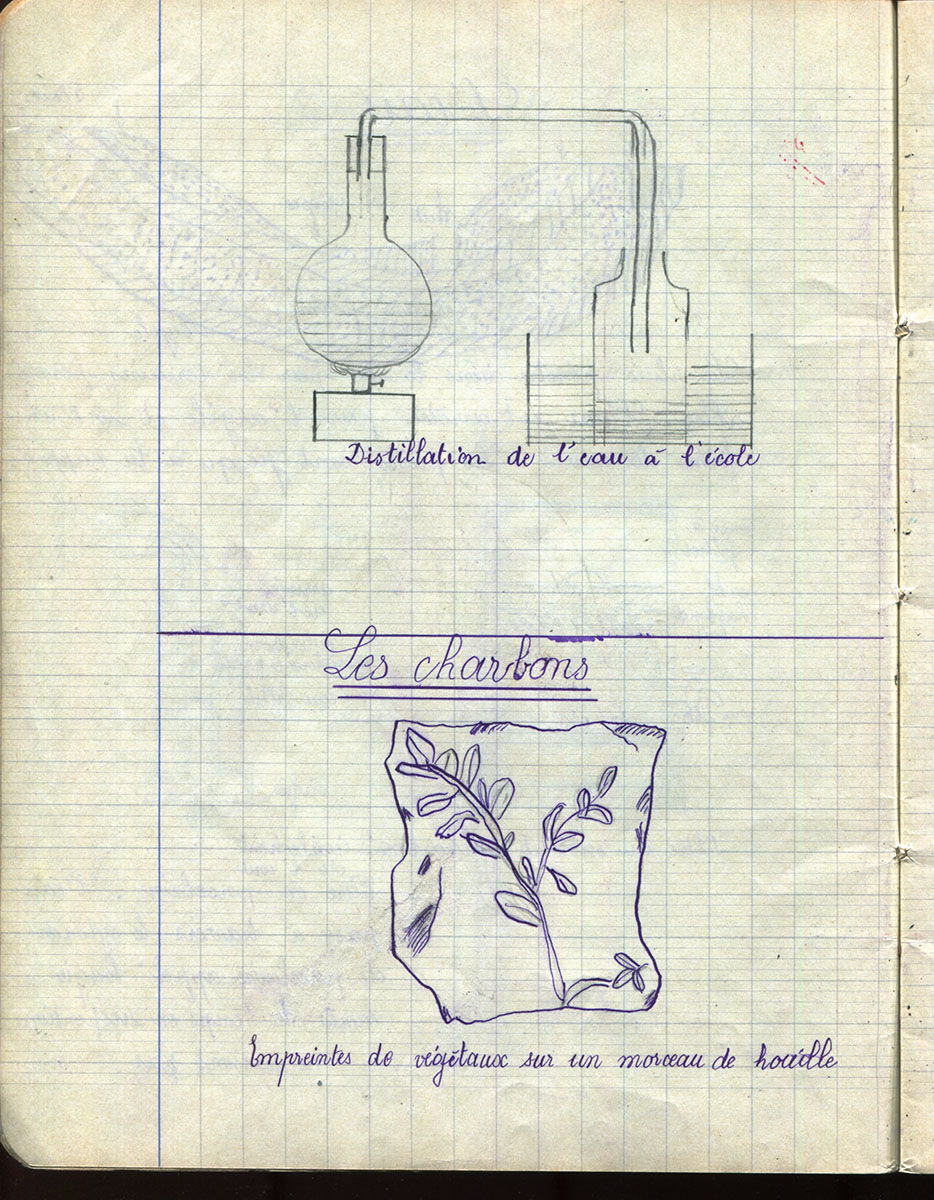 Distillation de l'eau à l'école
Les charbons
Empreintes de végétaux sur un morceau de houille